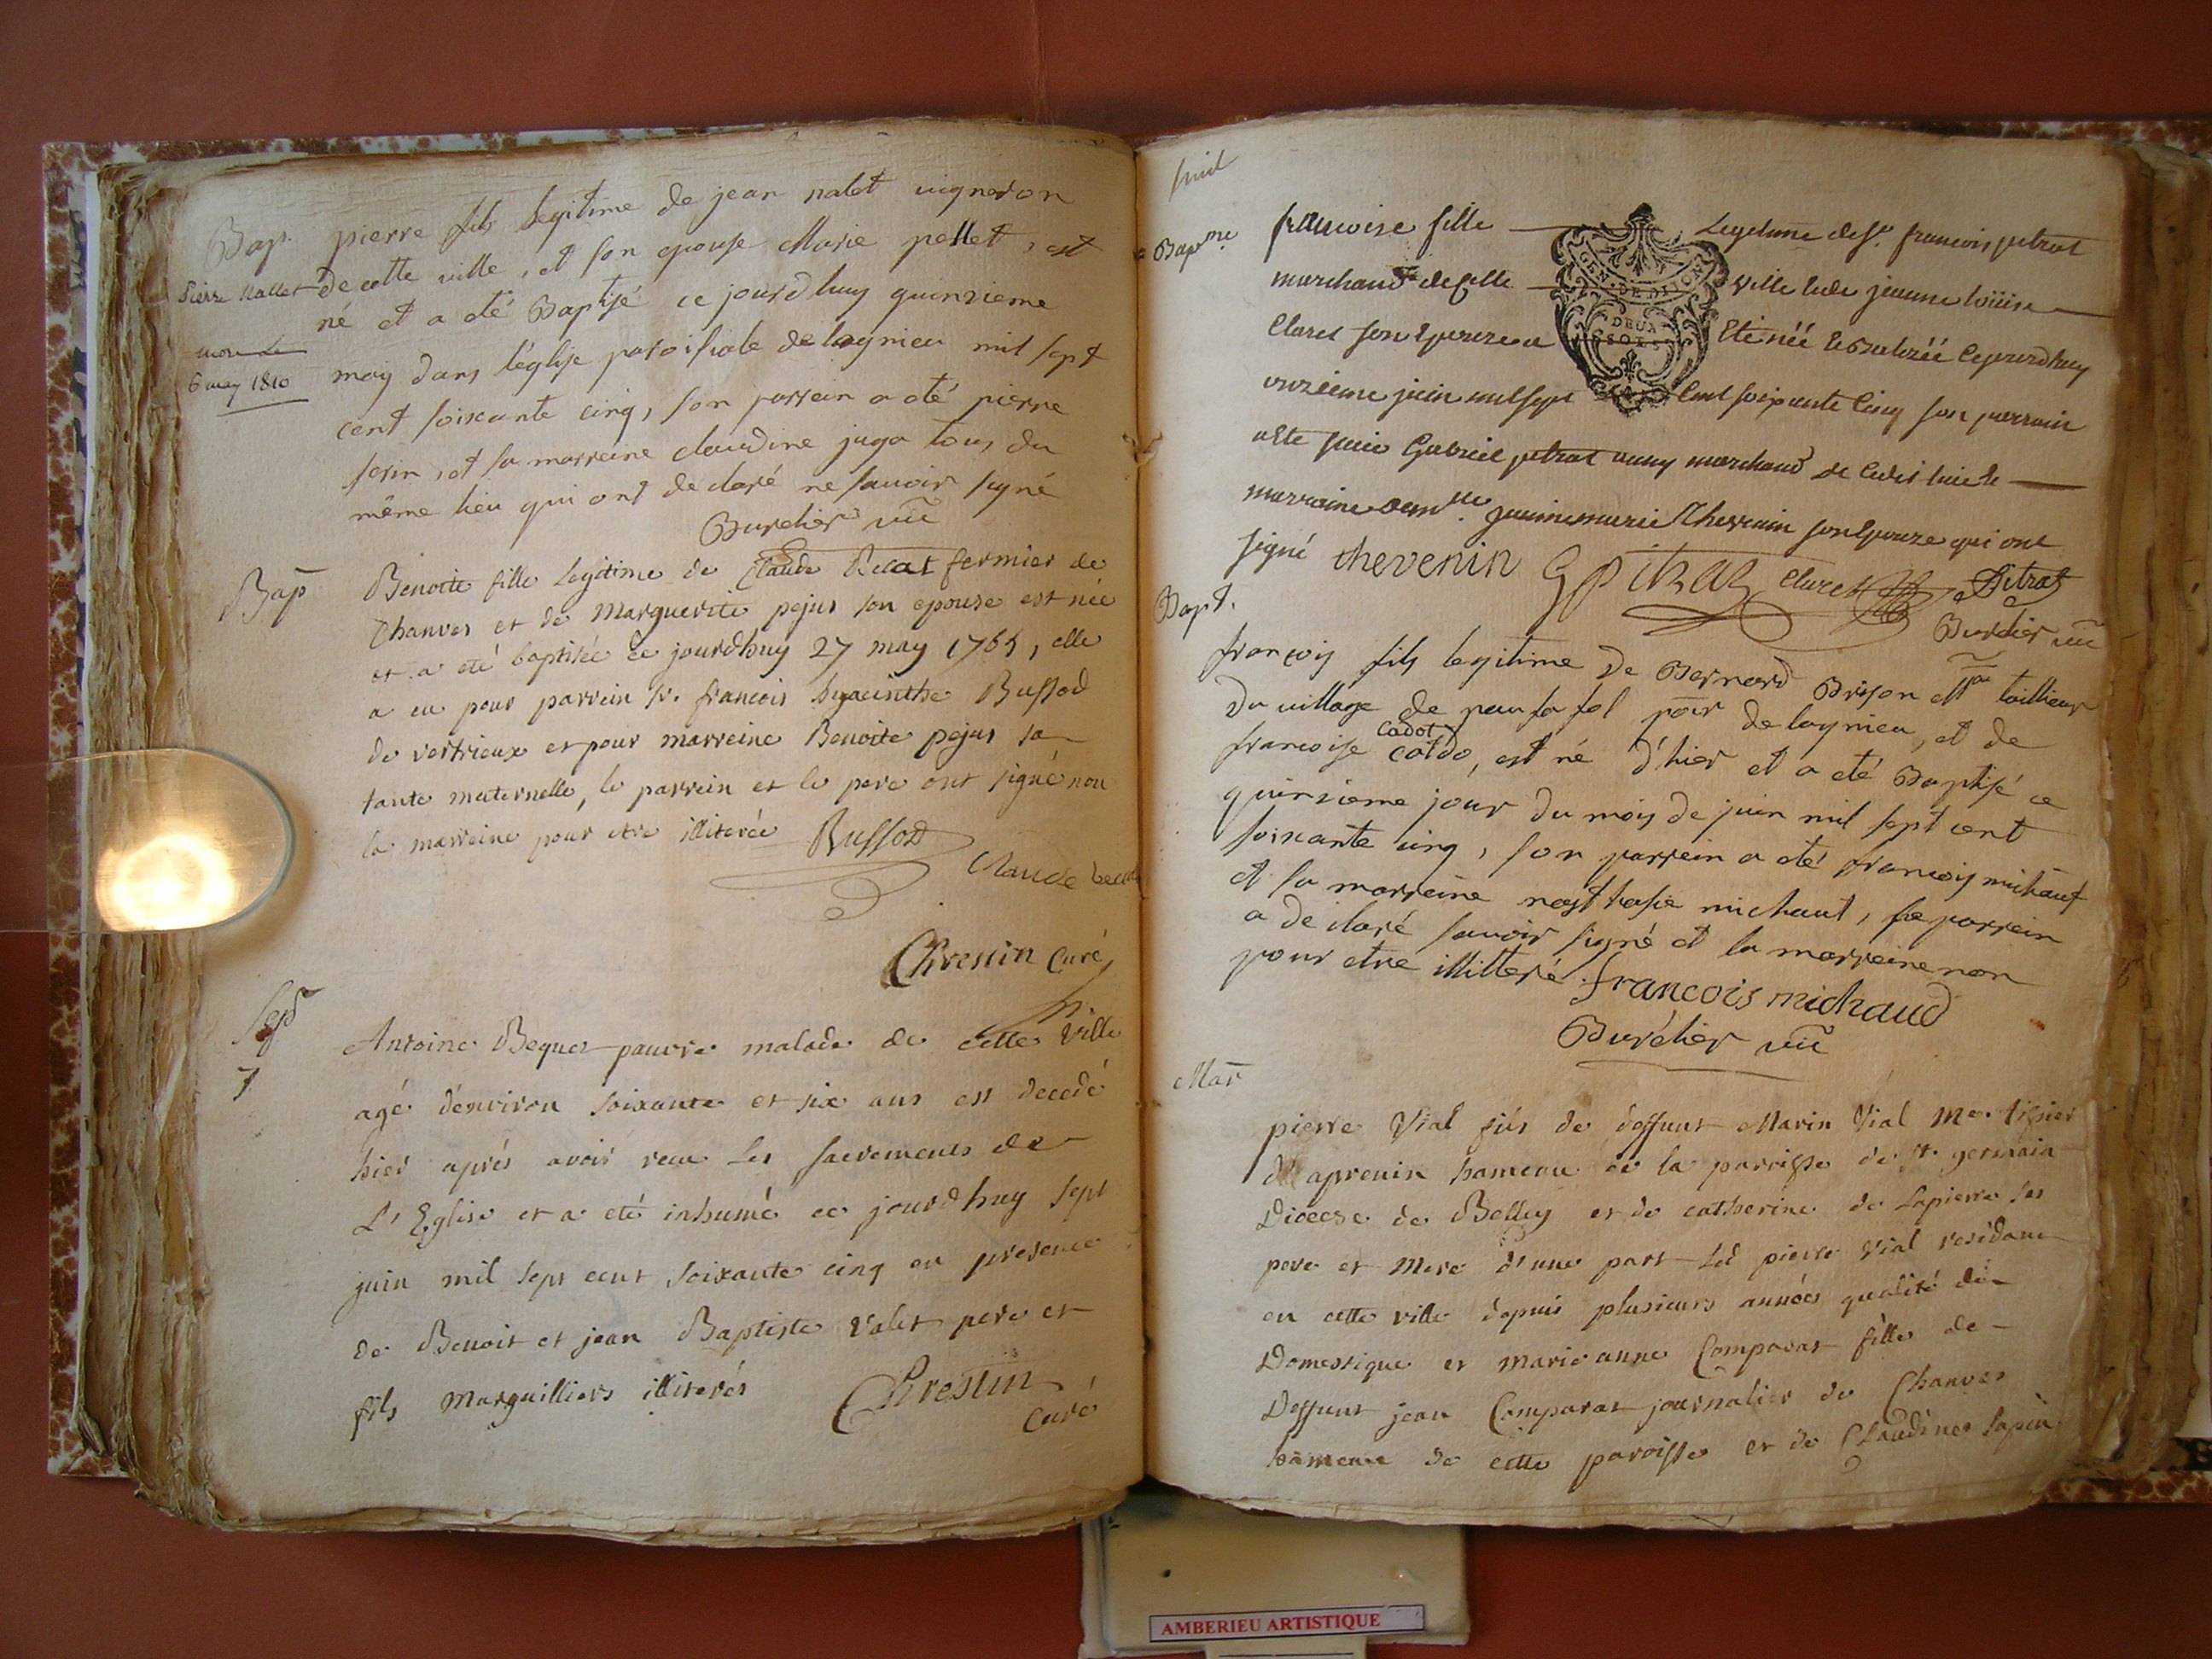 Bap.
pierre fils legitime de jean nalet vigneron
Pierre Nallet
de cette ville, et son epouse Marie pellet, est
né et a été Baptisé ce jourd huy quinzieme
mort le
6 may 1810
may dans l'église paroissiale de lagnieu mil sept
cent soixante cinq, son parrein a été pierre
serin, et sa marreine claudine juga tous du
même lieu qui ont declaré ne savoir signé
Burdier vic
Bap
Benoite fille legitime de Claude Becat fermier de
Chanves et de Marguerite pejus son epouse est née
et a été baptisée ce jourdhuy 27 may 1765, elle
a eu pour parrein sr. francois hyacinthe Buffod
de vertrieux et pour marreine Benoite pejus sa
tante maternelle, le parrein et le pere ont signé non
la marreine pour etre illiterée Buffod
Claude
Chrestin Curé
Sep
7
Antoine Bequet pauvre malade de cette ville
agé d'environ soixante et six ans est decedé
hier aprés avoir recu les sacrements de
L'Eglise et a eté inhumé ce jourdhuy sept
juin mil sept cent soixante cinq en presence
de Benoit et jean Baptiste Valet pere et
fils Marguilliers illiterés Chrestin
curé
Bapme
francoise fille Legitime de sr francois pitrat
marchand de cette ville et de jeanne loüise
Claret son Epouze a Eté néé et Batizéé cejourdhuy
onzieme juin mil sept Cent soixante Cinq son parrain
GEN. DE DIJON
DEUX
a Eté Gabriel pitrat aussy marchand de
marraine demlle jeanne marie Thevenin son Epouze qui ont
signé thevenin G pitrat claret Pitrat
Burdier vic
Bapt.
françois fils legitime de Bernard Brison me taillieur
du village de par de lagnieu, et de
Cadot
francoise catdo, est né d'hier et a eté Baptisé ce
quinzieme jour du mois de juin mil sept cent
soixante cinq, son parrein a eté françois michaut
et la marreine michaut, le parrein
a declaré savoir signé et la marreine non
pour etre illitteré. francois michaud
Burdier vic
Mar
pierre Vial fils de deffunt Marin Vial Me. tissier
d'aprenin hameau de la parroisse de st. germain
Diocese de Belley et de catherine de Lapierre ses
pere et Mere d'une part led pierre Vial residant
en cette ville depuis plusieurs années qualité de
Domestique et marie anne Comparat fille de
Deffunt jean Comparat journalier de Chanves
hameau de cette paroisse et de Claudine sapin
AMBERIEU ARTISTIQUE